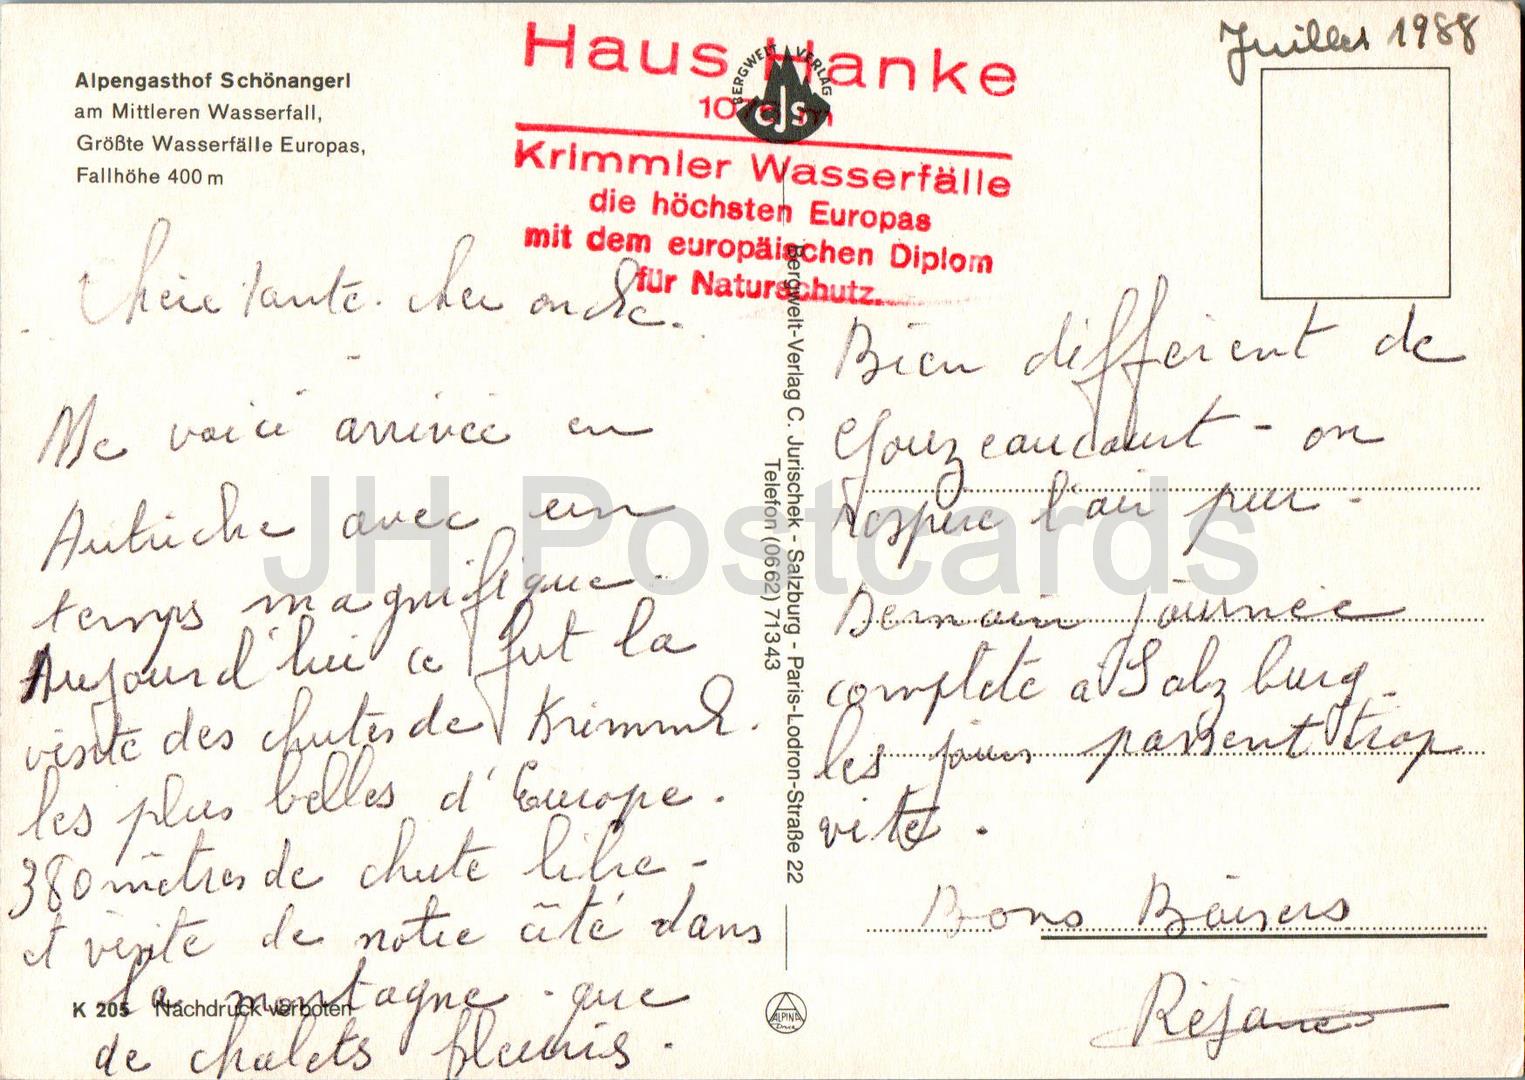 Juillet 1988
Alpengasthof Schönangerl
am Mittleren Wasserfall,
Größte Wasserfälle Europas,
Fallhöhe 400 m
Haus Hanke
m
Krimmler Wasserfälle
die höchsten Europas
mit dem europäischen Diplom
für Naturschutz.
BERGWELT VERLAG
CJS
Chère tante. cher oncle.
Me voici arrivée en
Autriche avec un
temps magnifique.
Aujourd'hui ce fut la
visite des chutes de Krimml.
les plus belles d'Europe.
380 mètres de chute libre -
et visite de notre cité dans
la montagne - que
de chalets fleuris.
Bergwelt-Verlag C. Jurischek - Salzburg - Paris-Lodron-Straße 22
Telefon (0662) 71343
Bien différent de
Gouzeaucourt - on
respire l'air pur -
Demain journée
complète à Salzburg.
les jours passent trop
vite.
Bons Baisers
Réjane
K 205 Nachdruck verboten
ALPINA
Druck
JH Postcards